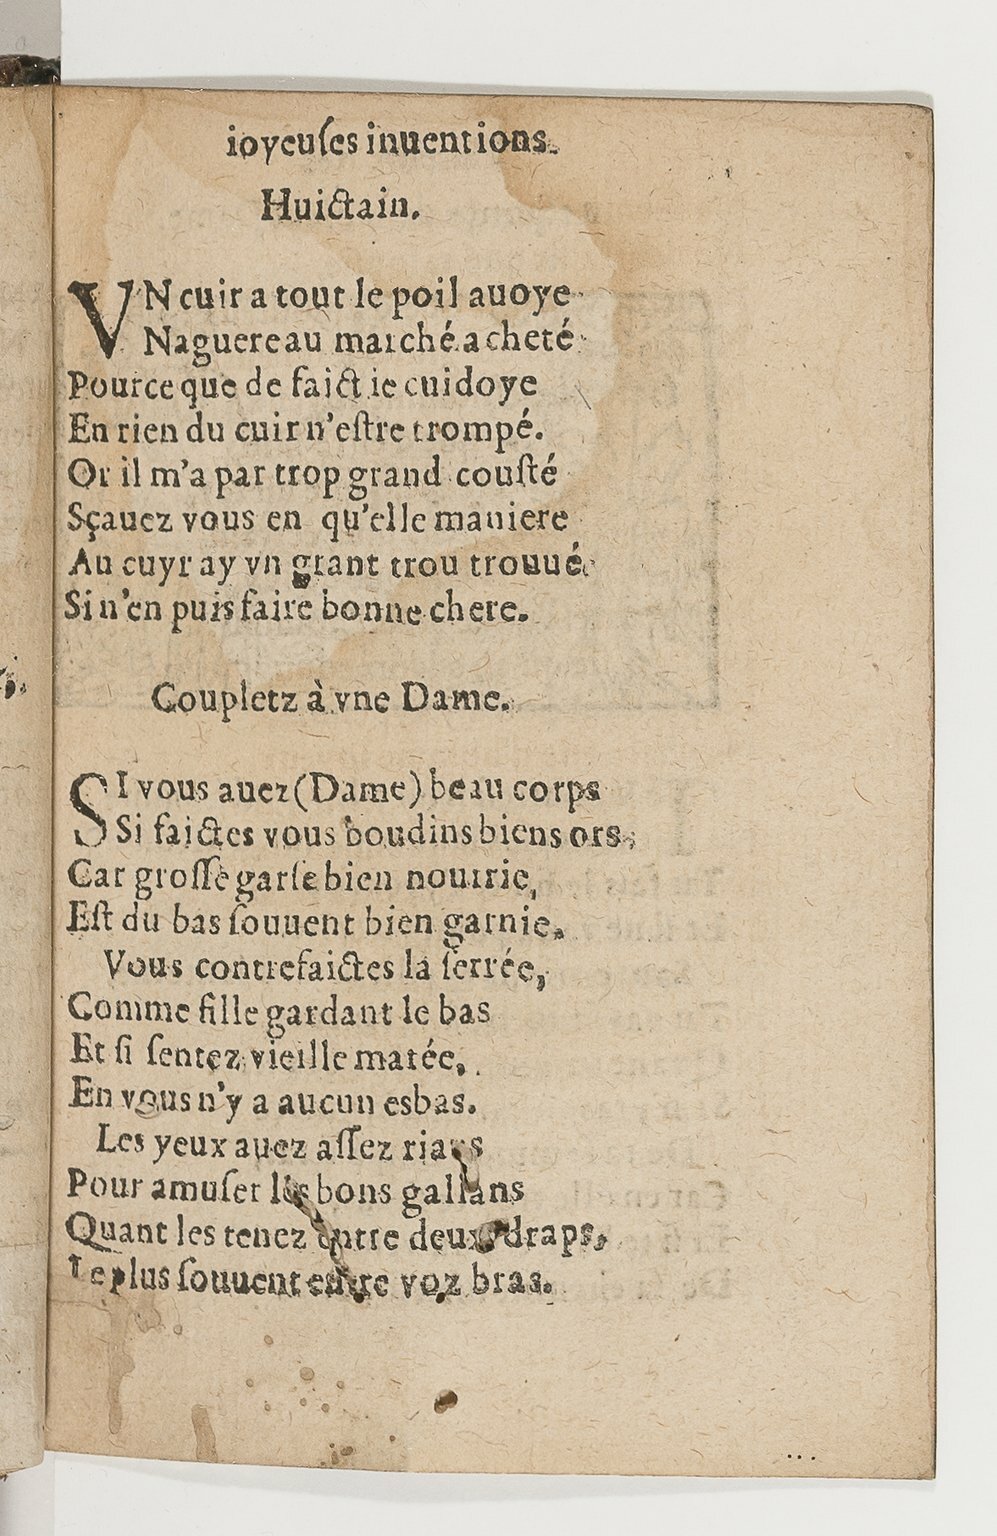 ioyeuſes inuentions.
Huictain.
VN cuir a tout le poil auoye
Naguere au marché acheté
Pource que de faict ie cuidoye
En rien du cuir n'eſtre trompé.
Or il m'a par trop grand couſté
Sçauez vous en qu'elle maniere
Au cuyr ay vn grant trou trouué
Si n'en puis faire bonne chere.
Coupletz à vne Dame.
SI vous auez (Dame) beau corps
Si faictes vous boudins biens ors,
Car groſſe garſe bien nourrie,
Eſt du bas ſouuent bien garnie.
Vous contrefaictes la ſerrée,
Comme fille gardant le bas
Et ſi ſentez vieille matée,
En vous n'y a aucun esbas.
Les yeux auez aſſez rians
Pour amuſer les bons gallans
Quant les tenez entre deux draps,
Le plus ſouuent entre voz bras.